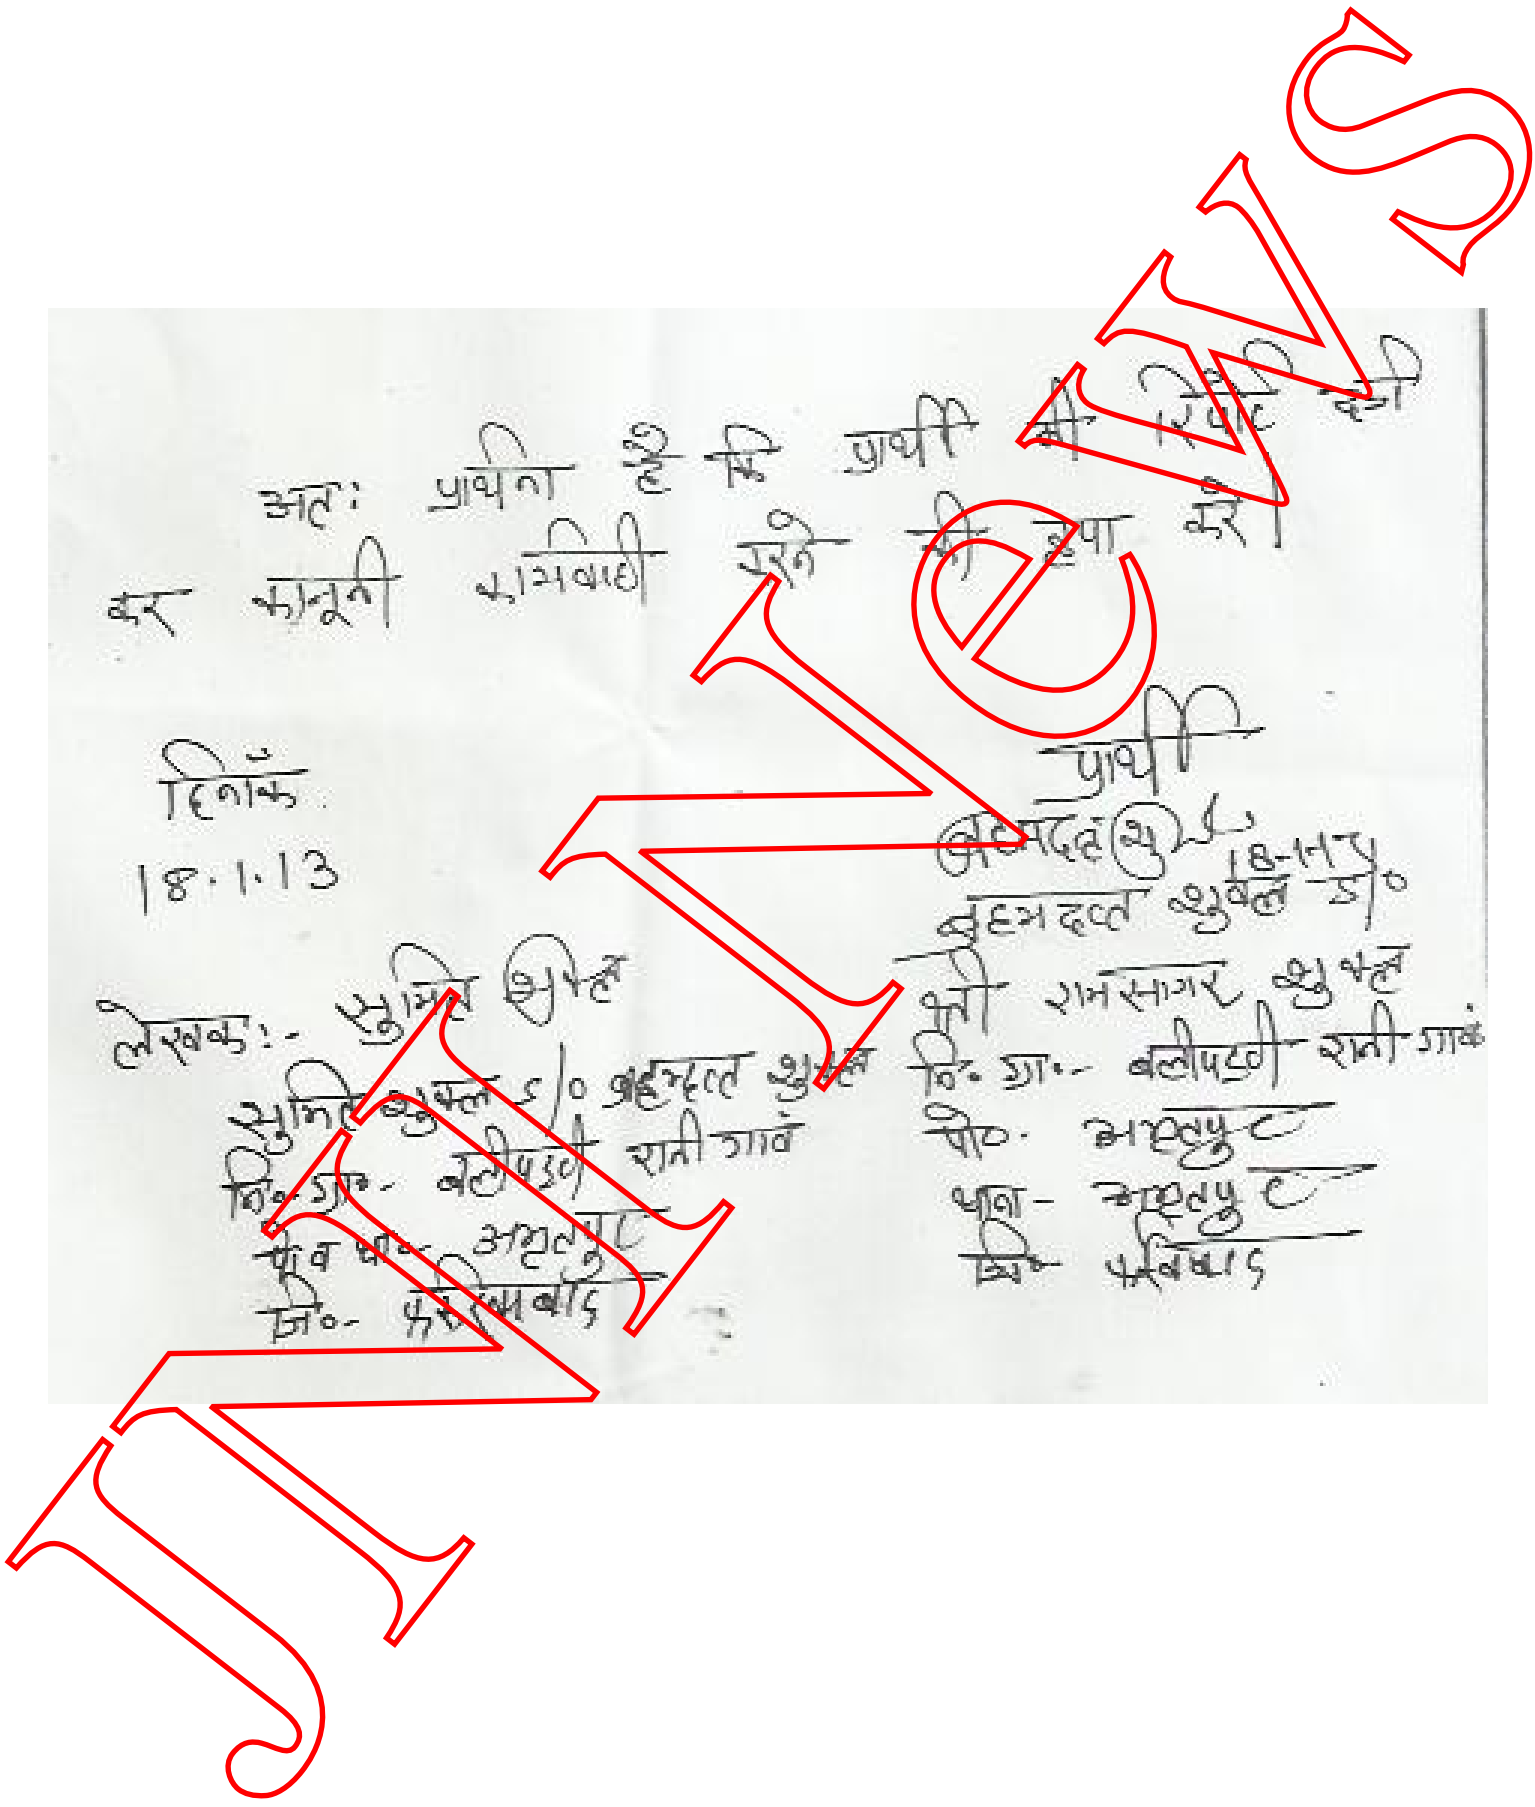 अतः प्रार्थना है कि प्रार्थी की रिपोर्ट दर्ज
कर कानूनी कार्यवाही करने की कृपा करें।
प्रार्थी
दिनाँक
18.1.13
ब्रह्मदत्त शुक्ल
18-1-13
ब्रह्मदत्त शुक्ल S/०
श्री रामसागर शुक्ल
नि० ग्रा०- बलीपट्टी रानी गावं
पो०- अमृतपुर
थाना- अमृतपुर
जि०-
लेखकः- सुमित शुक्ल
सुमित शुक्ल S/० ब्रह्मदत्त शुक्ल
नि० ग्रा०- बलीपट्टी रानी गावं
पो० व था०- अमृतपुर
जि०- फर्रुखाबाद
JNI News